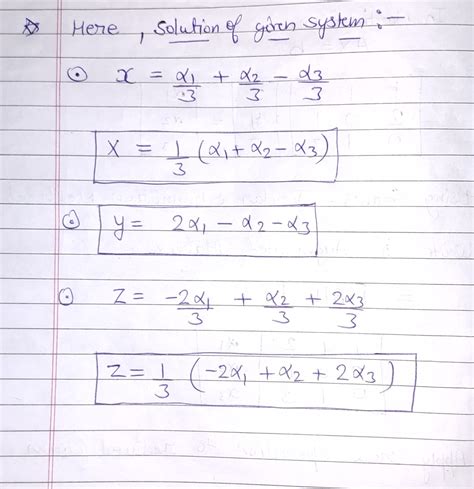 Here, Solution of given system :-
x = α1/3 + α2/3 - α3/3
x = 1/3 (α1 + α2 - α3)
y = 2α1 - α2 - α3
z = -2α1/3 + α2/3 + 2α3/3
z = 1/3 (-2α1 + α2 + 2α3)